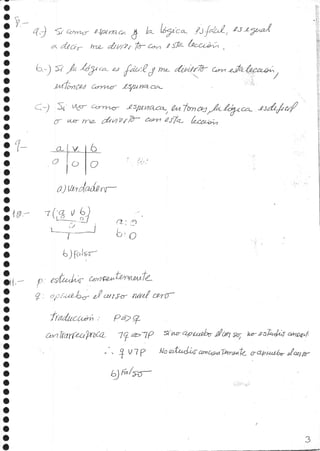 8.-
a.) Si como espinaca y la lógica es fácil, es igual
a decir me divierto con esta lección.
b.-) Si la lógica es fácil y me divierto con esta lección,
entonces como espinaca
c.-) Si no como espinaca, entonces la lógica es difícil
o no me divierto con esta lección
9-
a v b
0 | 0 | 0
a) Verdadero
10.- ¬(a v b)
a: 0
b: 0
b) Falso
11.- p: estudio conscientemente
q: apruebo el curso nivel cero
traducción: p→q
contrarrecíproca ¬q→¬p Si no apruebo el curso, no estudio
∴ q v ¬p No estudio conscientemente o apruebo el curso
b) Falso
3